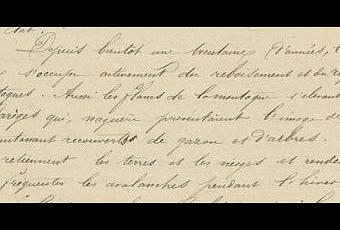 état.
Depuis bientôt une trentaine d'années, l
s'occupe activement du reboisement et du re
tagnes. Aussi les flancs de la montagne s'élevant
Barèges qui, naguère présentaient l'image de
maintenant recouverts de gazon et d'arbres.
retiennent les terres et les neiges et rendent
fréquentes les avalanches pendant l'hiver